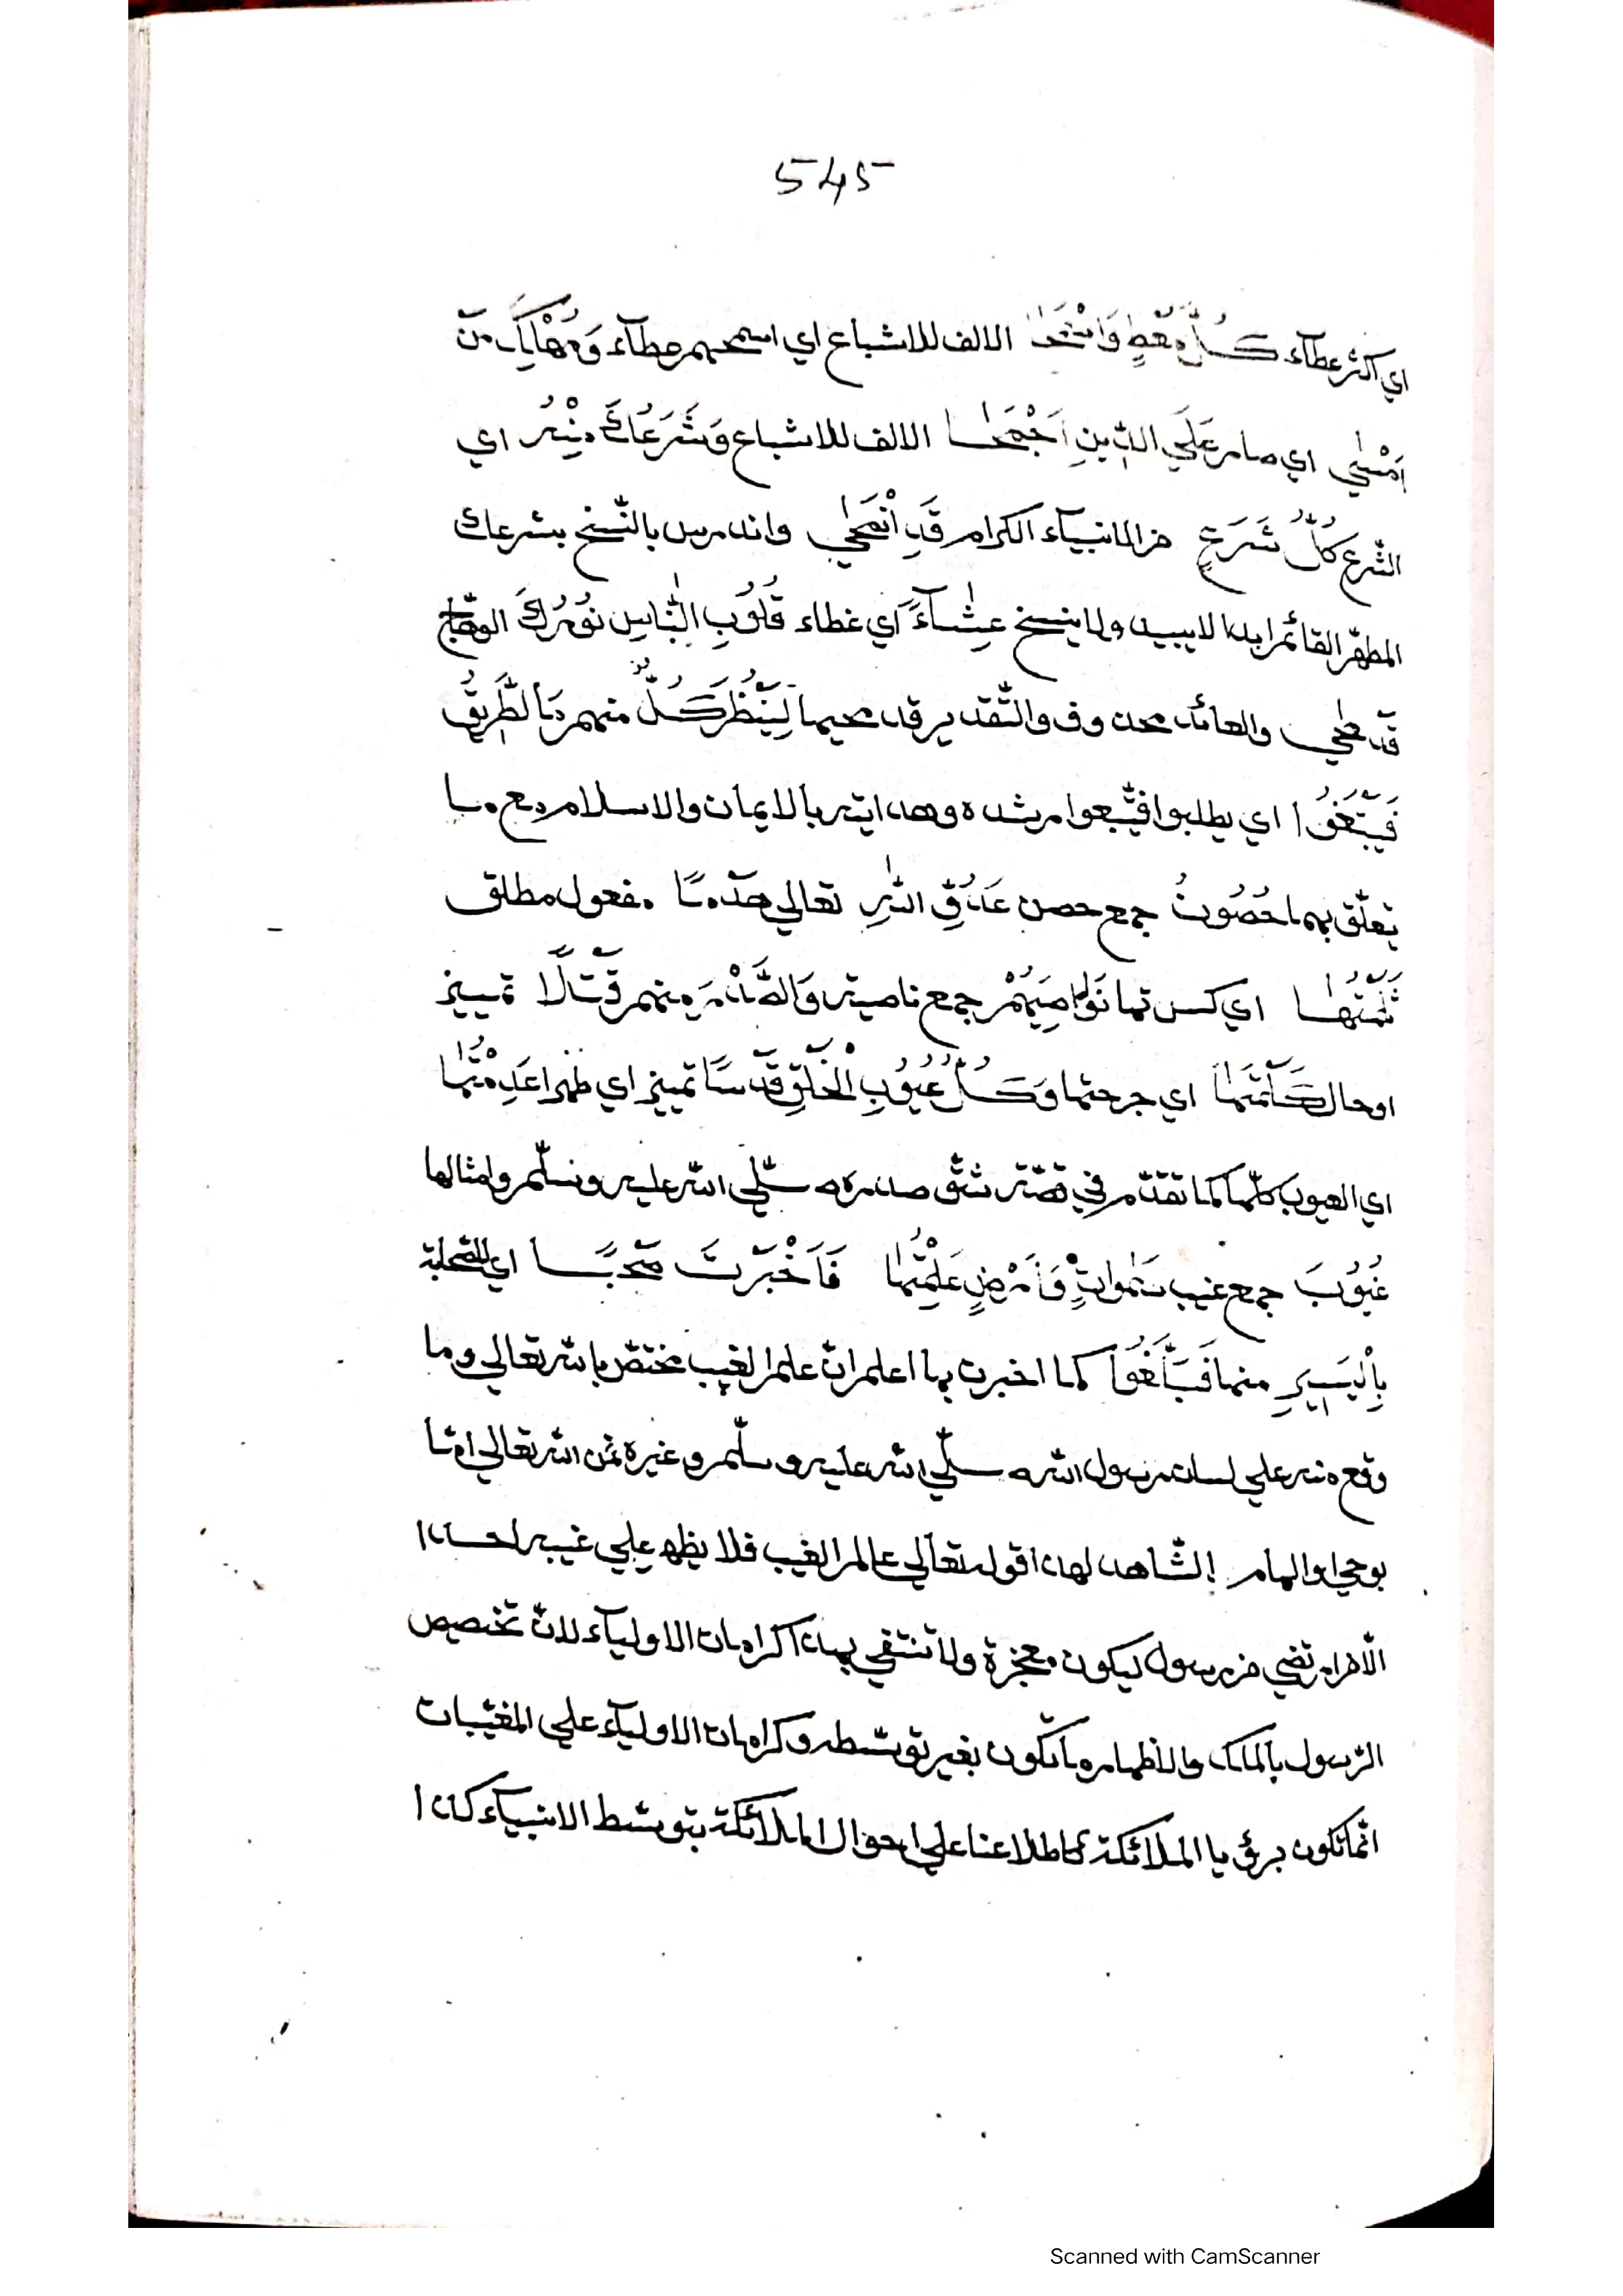 545
اي اكثر عطآء كُلِّ مُعْطٍ وَاَسْمَحَا الالف للاشباع اي اسمحهم عطآء وَمُهْلِكَ مَنْ
اَمْسٰي اي صار عَلَي الدِّينِ اَجْمَحَا الالف للاشباع وَشَرْعُكَ مِنْهُ اي
الشّرع كُلُّ شَرْعٍ من الانبيآء الكرام قَدِ انْمَحٰي واندرس بالنّسخ بشرعك
المطهّر القائم ابد الابيد ولا ينسخ غِشَآءَ اي غطاء قُلُوبِ النَّاسِ نُورُكَ الوهّاج
قَدْ طحٰي والعائد محذوف والتّقدير قد محيها لِيَنْظُرَ كُلٌّ منهم بِالطَّرِيقُ
فَيَبْتَغُوا اي يطلبوا فيتّبعوا رشده وهدايته بالايمان والاسلام مع ما
يتعلّق بهما حُصُونُ جمع حصن عَدُوِّ اللّٰهِ تعالي هَدْمًا مفعول مطلق
ثَلَمْتَهَا اي كسرتها نَوَاصِيَهُمْ جمع ناصية وَالصَّدْرَ منهم قَتْلًا تمييز
او حال كَلَمْتَهَا اي جرحتها وَكُلُّ عُيُوبِ الْخَلْقِ قَدْسًا تمييز اي طهرا عَدِمْتَهَا
اي العيوب كلّها كما تقدّم في قصّة شقّ صدره صلّي الله عليه وسلّم وامثالها
غُيُوبَ جمع غيب سَمٰوَاتٍ وَاَرْضٍ عَلِمْتَهَا فَاَخْبَرْتَ صَحْبًا اي الصّحابة
بِالْيَسِيرِ منها فَبَلَّغُوا كما اخبرت بها اعلم انّ علم الغيب مختصّ بالله تعالي وما
وقع منه علي لسان رسول الله صلّي الله عليه وسلّم وغيره فمن الله تعالي امّا
بوحي او الهام الشّاهد لهذا قوله تعالي عالم الغيب فلا يظهر علي غيبه احدا
الّا من ارتضي من رسول ليكون معجزة ولا تنتفي بهذا كرامات الاوليآء لانّ تخصيص
الرّسول بالملك والاظهار ما تكون بغير توسّطه وكرامات الاوليآء علي المغيّبات
انّما تكون برؤيا الملائكة كاطلاعنا علي احوال الملائكة بتوسّط الانبيآء كذا
Scanned with CamScanner